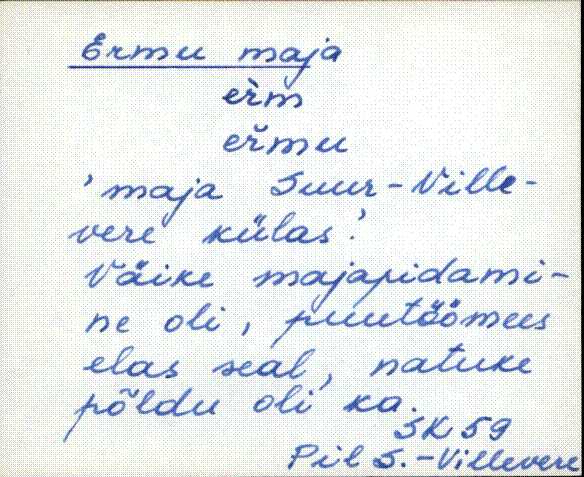 Ermu maja
er̀m
eřmu
'maja Suur-Ville-
vere külas.'
Väike majapidami-
ne oli, puutöömees
elas seal, natuke
põldu oli ka.
SK 59
Pil S.-Villevere